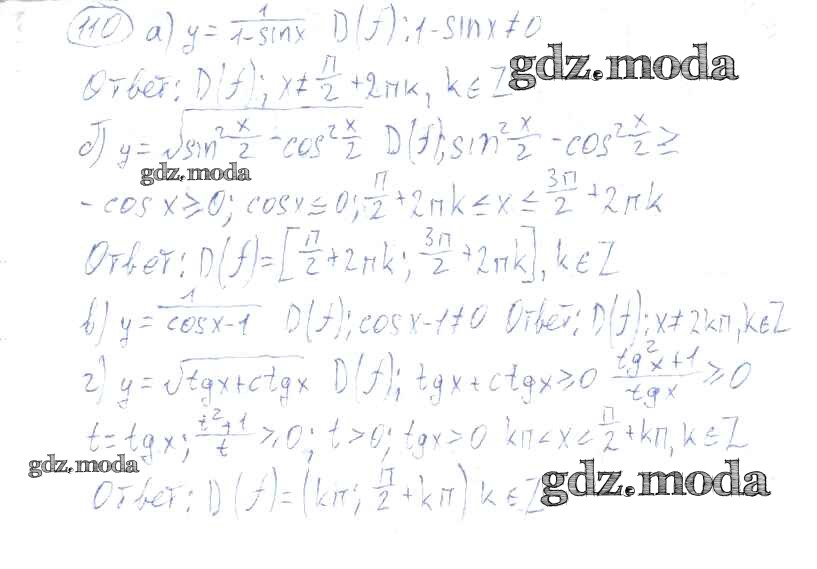 110 а) y = 1/(1-sinx) D(f); 1-sinx≠0
gdz.moda
Ответ: D(f); x≠π/2+2πk, k∈Z
б) y = √(sin²x/2 - cos²x/2) D(f); sin²x/2 - cos²x/2 ≥
gdz.moda
-cosx≥0; cosx≤0; π/2+2πk≤x≤3π/2+2πk
Ответ: D(f)=[π/2+2πk; 3π/2+2πk], k∈Z
в) y = 1/(cosx-1) D(f); cosx-1≠0 Ответ: D(f); x≠2kπ, k∈Z
г) y = √(tgx+ctgx) D(f); tgx+ctgx≥0 (tg²x+1)/tgx ≥0
t=tgx; (t²+1)/t ≥0; t>0; tgx>0 kπ<x<π/2+kπ, k∈Z
gdz.moda
Ответ: D(f)=(kπ; π/2+kπ) k∈Z
gdz.moda